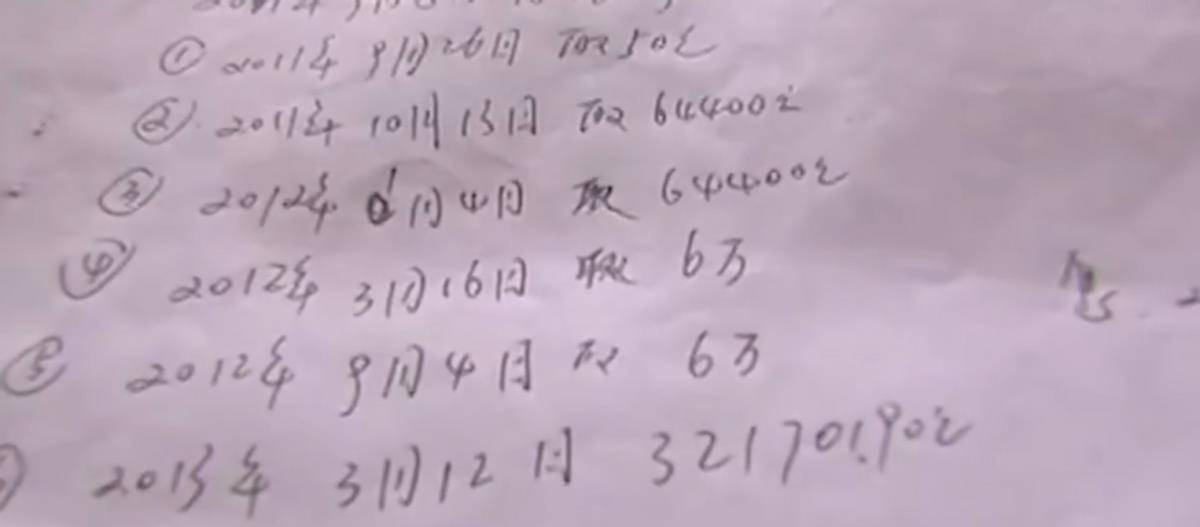 ① 2011年9月26日 取50元
② 2011年10月13日 取64400元
③ 2012年1月4日 取 64400元
④ 2012年3月16日 取 6万
⑤ 2012年9月4日 取 6万
2013年3月12日 321701.90元